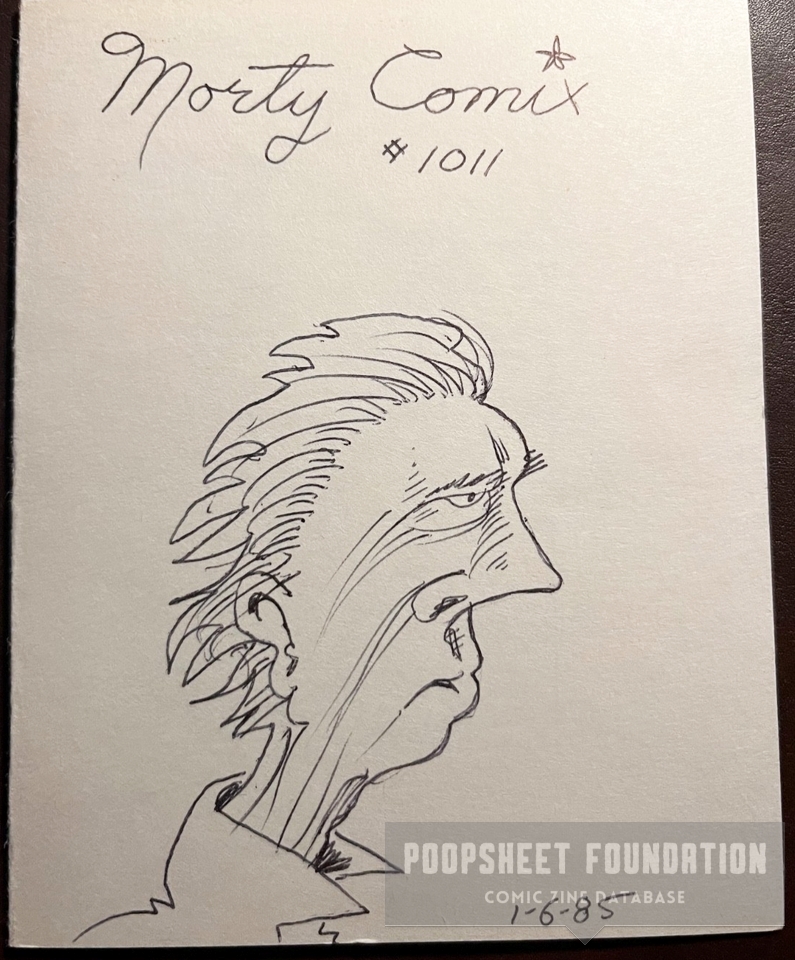 Morty Comix
#1011
POOPSHEET FOUNDATION
COMIC ZINE DATABASE
1-6-85